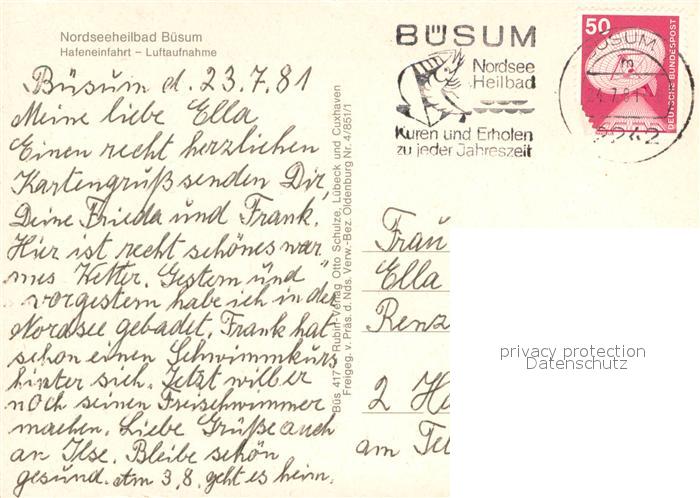 Nordseeheilbad Büsum
Hafeneinfahrt – Luftaufnahme
Büsum d. 23.7.81
Meine liebe Ella
Einen recht herzlichen
Kartengruß senden Dir,
Deine Frieda und Frank.
Hier ist recht schönes war
mes Wetter. Gestern und
vorgestern habe ich in der
Nordsee gebadet. Frank hat
schon einen Schwimmkurs
hinter sich. Jetzt will er
noch seinen Freischwimmer
machen. Liebe Grüße auch
an Ilse. Bleibe schön
gesund. Am 3.8. geht es heim.
Büs 417 Rubin-Verlag Otto Schulze, Lübeck und Cuxhaven
Freigeg. v. Präs. d. Nds. Verw.-Bez. Oldenburg Nr. 4/851/1
BÜSUM
Nordsee
Heilbad
Kuren und Erholen
zu jeder Jahreszeit
50
DEUTSCHE BUNDESPOST
BÜSUM
2242
Frau
Ella
Renz
2 Ha
am Tel
privacy protection
Datenschutz